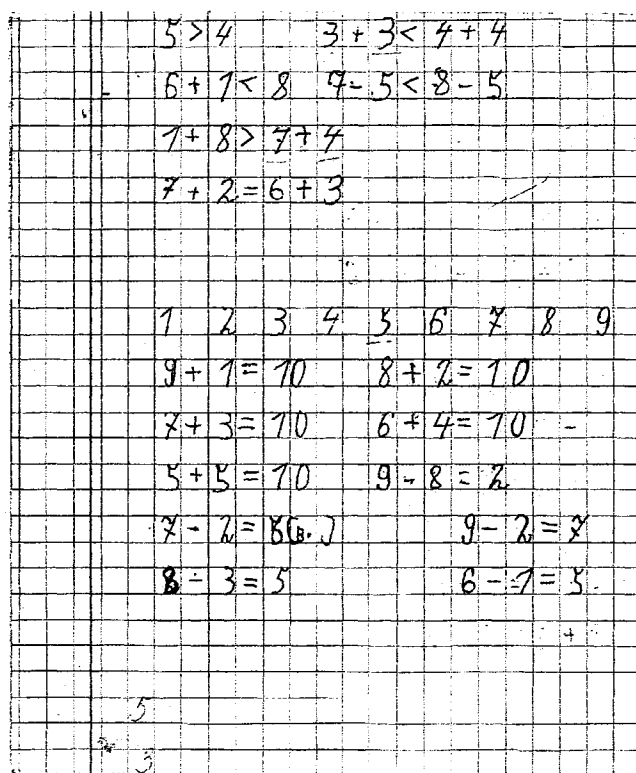 5 > 4 3 + 3 < 4 + 4
6 + 1 < 8 7 - 5 < 8 - 5
1 + 8 > 7 + 4
7 + 2 = 6 + 3
1 2 3 4 5 6 7 8 9
9 + 1 = 10 8 + 2 = 10
7 + 3 = 10 6 + 4 = 10
5 + 5 = 10 9 - 8 = 2
7 - 2 = (в.) 9 - 2 = 7
8 - 3 = 5 6 - 1 = 5
5
3